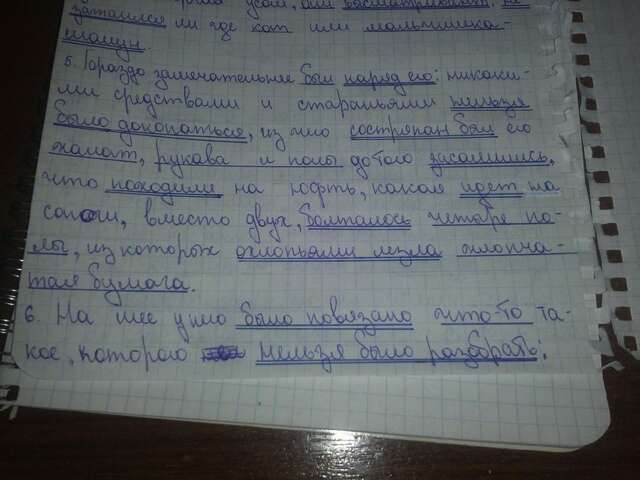 усом, или высматривает, не
затаился ли где кот или мальчишка-
шалун.
5. Гораздо замечательнее был наряд его: никаки-
ми средствами и стараньями нельзя
было докопаться, из чего состряпан был его
халат, рукава и полы до того засалились,
что походили на юфть, какая идет на
сапоги, вместо двух, болталось четыре по-
лы, из которых охлопьями лезла хлопча-
тая бумага.
6. На шее у него было повязано что-то та-
кое, которого нельзя было разобрать: